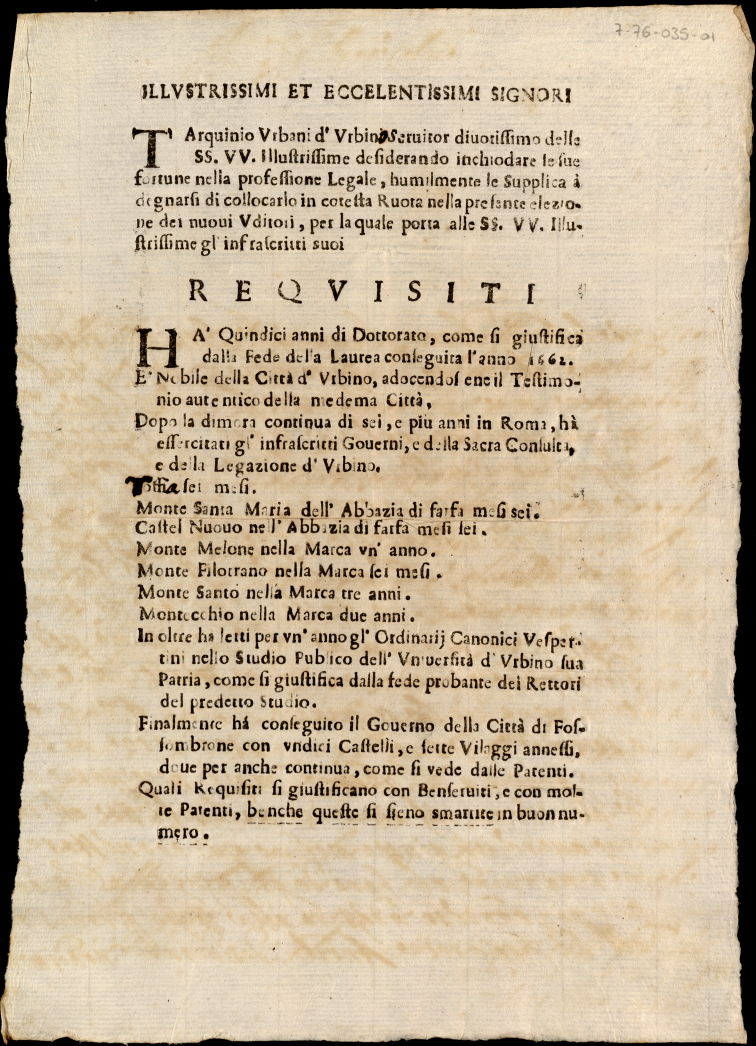 7-76-035-01
ILLVSTRISSIMI ET ECCELENTISSIMI SIGNORI
TArquinio Vrbani d' Vrbino Seruitor diuotissimo delle
SS. VV. Illustrissime desiderando inchiodare le sue
fortune nella professione Legale, humilmente le Supplica à
degnarsi di collocarlo in cotesta Ruota nella presente elezio-
ne dei nuoui Vditori, per la quale porta alle SS. VV. Illu-
strissime gl' infrascritti suoi
REQVISITI
HA' Quindici anni di Dottorato, come si giustifica
dalla Fede della Laurea conseguita l'anno 1662.
E' Nobile della Città d' Vrbino, adocendosene il Testimo-
nio autentico della medema Città,
Dopo la dimora continua di sei, e piu anni in Roma, hà
essercitati gl' infrascritti Gouerni, e della Sacra Consulta,
e della Legazione d' Vrbino.
Toffia sei mesi.
Monte Santa Maria dell' Abbazia di farfa mesi sei.
Castel Nuouo nell' Abbazia di farfa mesi sei.
Monte Melone nella Marca vn' anno.
Monte Filotrano nella Marca sei mesi.
Monte Santo nella Marca tre anni.
Montecchio nella Marca due anni.
In oltre ha letti per vn' anno gl' Ordinarij Canonici Vesper-
tini nello Studio Publico dell' Vniuersità d' Vrbino sua
Patria, come si giustifica dalla fede probante dei Rettori
del predetto Studio.
Finalmente há conseguito il Gouerno della Città di Fos-
sombrone con vndici Castelli, e sette Vilaggi annessi,
doue per anche continua, come si vede dalle Patenti.
Quali Requisiti si giustificano con Benseruiti, e con mol-
te Patenti, benche queste si sieno smarrite in buon nu-
mero.